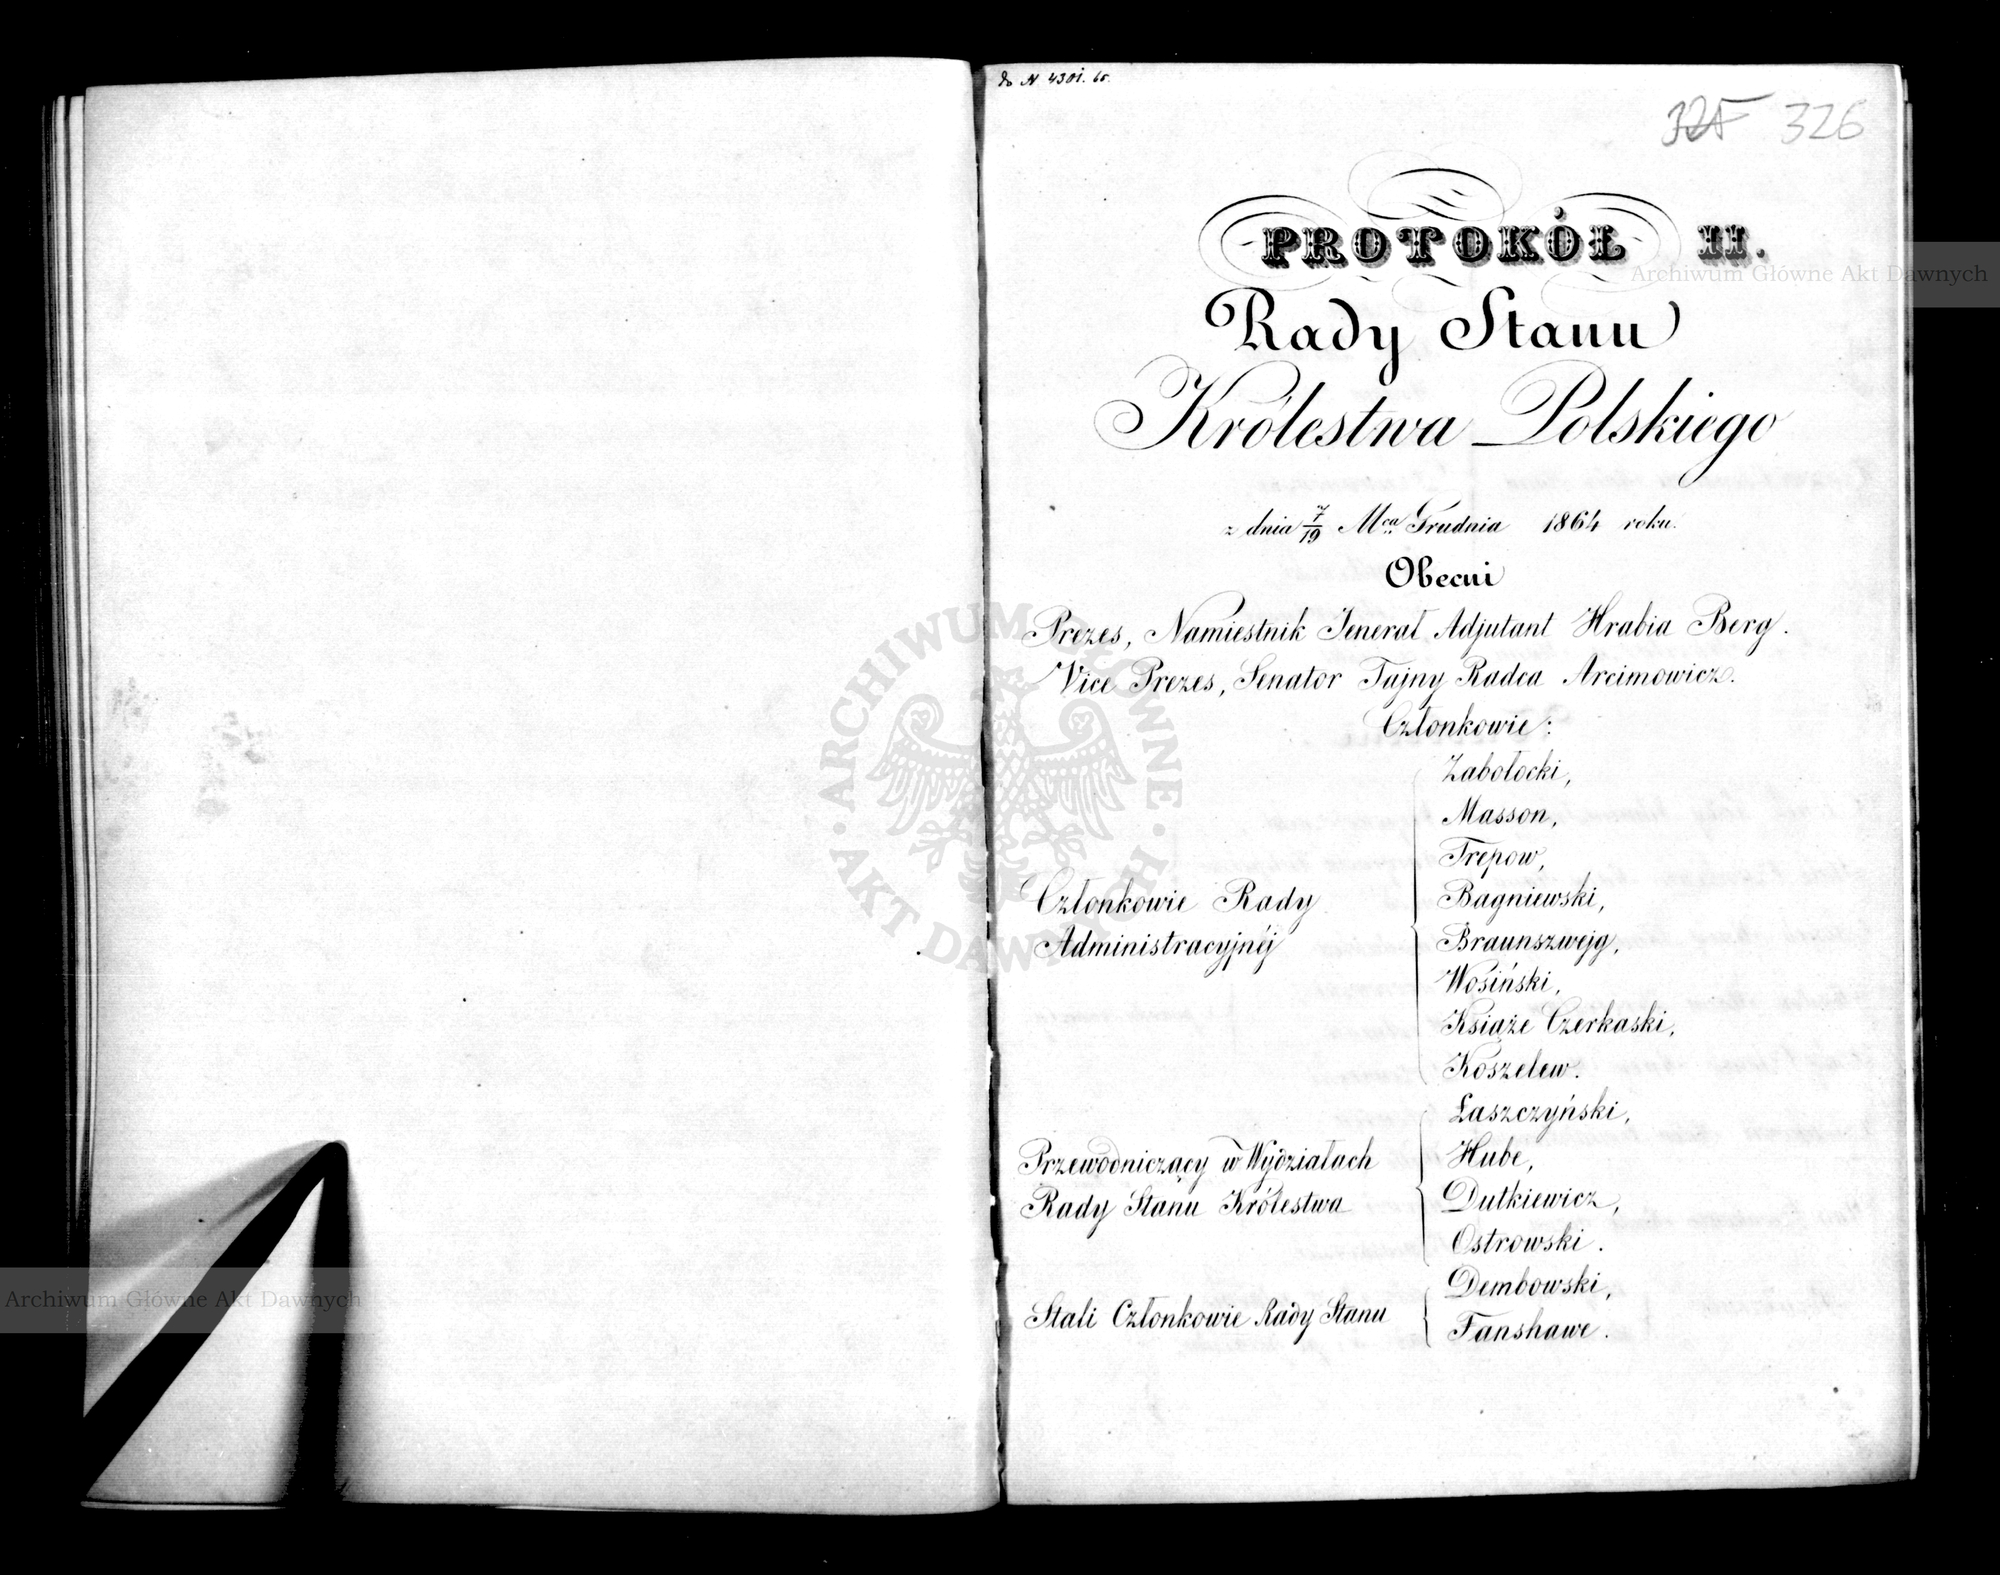 do N 4301. 65.
325 326
PROTOKÓŁ II.
Rady Stanu
Królestwa Polskiego
z dnia 7/19 Mca Grudnia 1864 roku.
Obecni
Prezes, Namiestnik Jenerał Adjutant Hrabia Berg.
Vice Prezes, Senator Tajny Radca Arcimowicz.
Członkowie:
Członkowie Rady
Administracyjnéj
Zabołocki,
Masson,
Trepow,
Bagniewski,
Braunszwejg,
Wosiński,
Książe Czerkaski,
Koszelew.
Przewodniczący w Wydziałach
Rady Stanu Królestwa
Łaszczyński,
Hube,
Dutkiewicz,
Ostrowski.
Stali Członkowie Rady Stanu
Dembowski,
Fanshawe.
Archiwum Główne Akt Dawnych
ARCHIWUM GŁÓWNE AKT DAWNYCH
Archiwum Główne Akt Dawnych